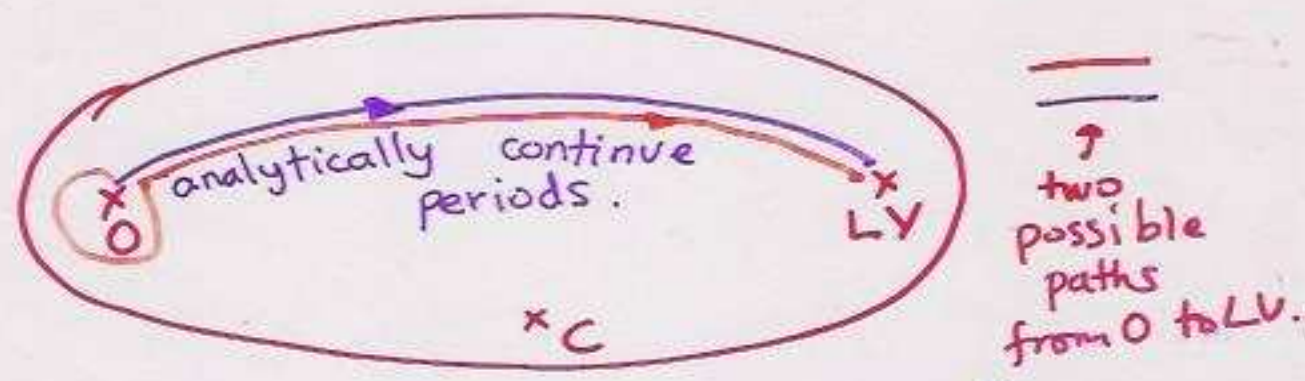 analytically continue
periods.
O
LV
C
two
possible
paths
from O to LV.